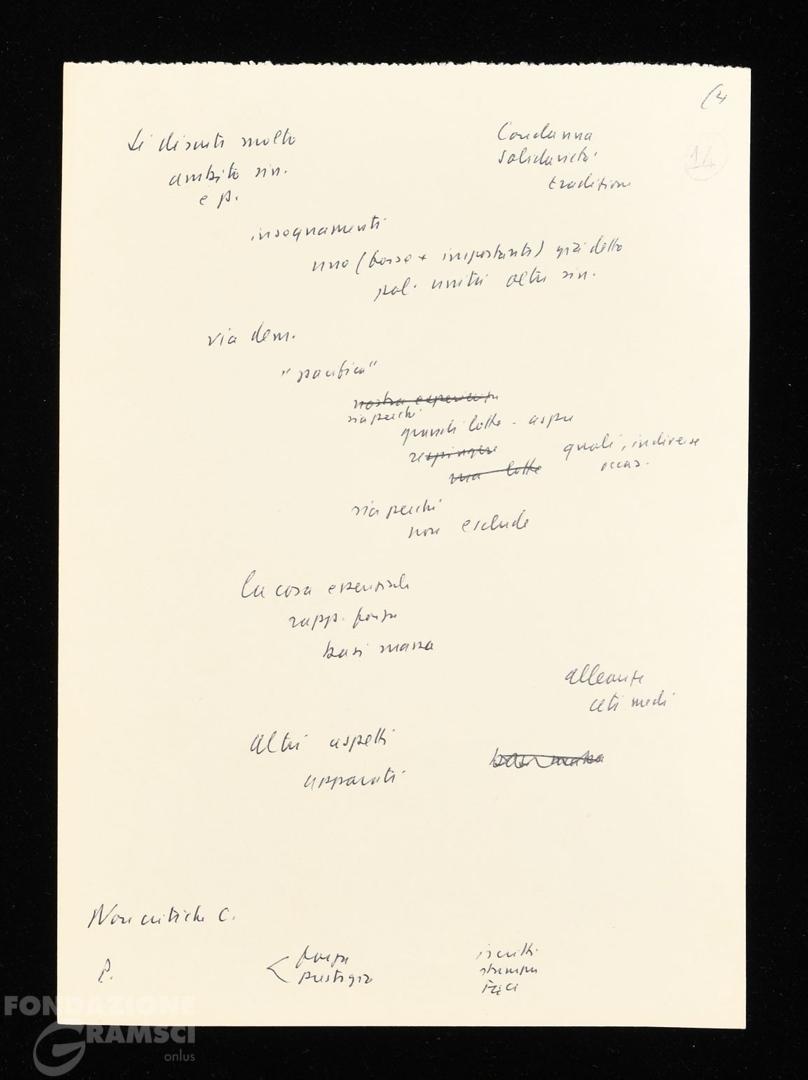 (4
14
Si discuti molto
ambito sin.
e p.
Condanna
solidarietà
tradizione
insegnamenti
uno (forse + importante) già detto
pol. unità altri sin.
via dem.
"pacifica"
nostra esperienza
sia perchè
grandi lotte - aspre
respingere
una lotta
quali, in diverse
occas.
sia perchè
non esclude
la cosa essenziale
rapp. forza
basi massa
alleanze
ceti medi
altri aspetti
apparati
basi massa
Non critiche C.
P.
forza
prestigio
iscritti
stampa
FGCI
FONDAZIONE
GRAMSCI
onlus